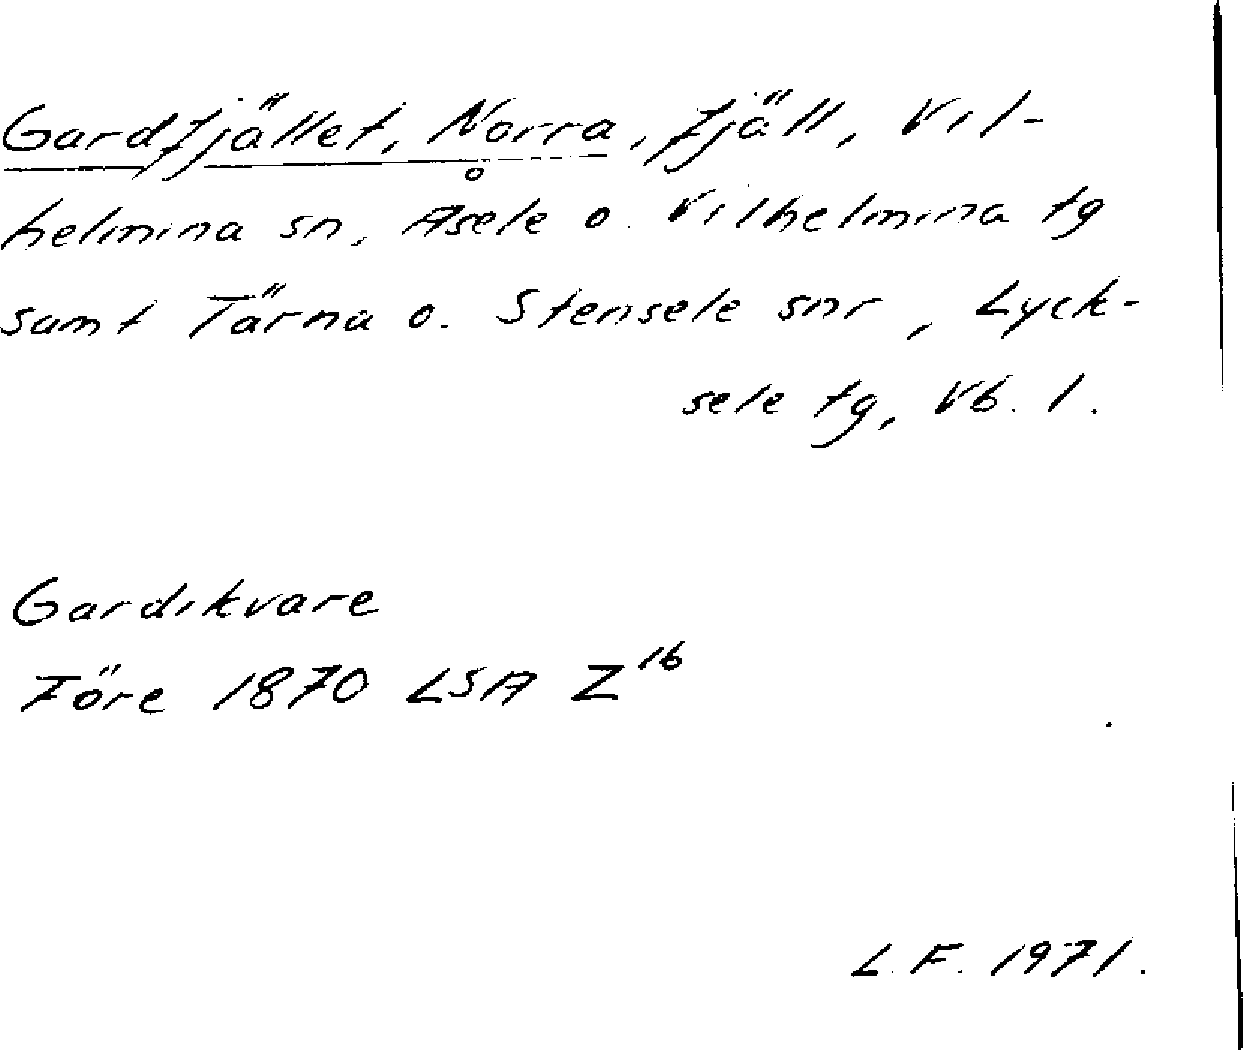 Gardfjället, Norra, fjäll, Vil-
helmina sn, Åsele o. Vilhelmina tg
samt Tärna o. Stensele snr, Lyck-
sele tg, Vb. l.
Gardikvare
Före 1870 LSA Z16
L.F. 1971.